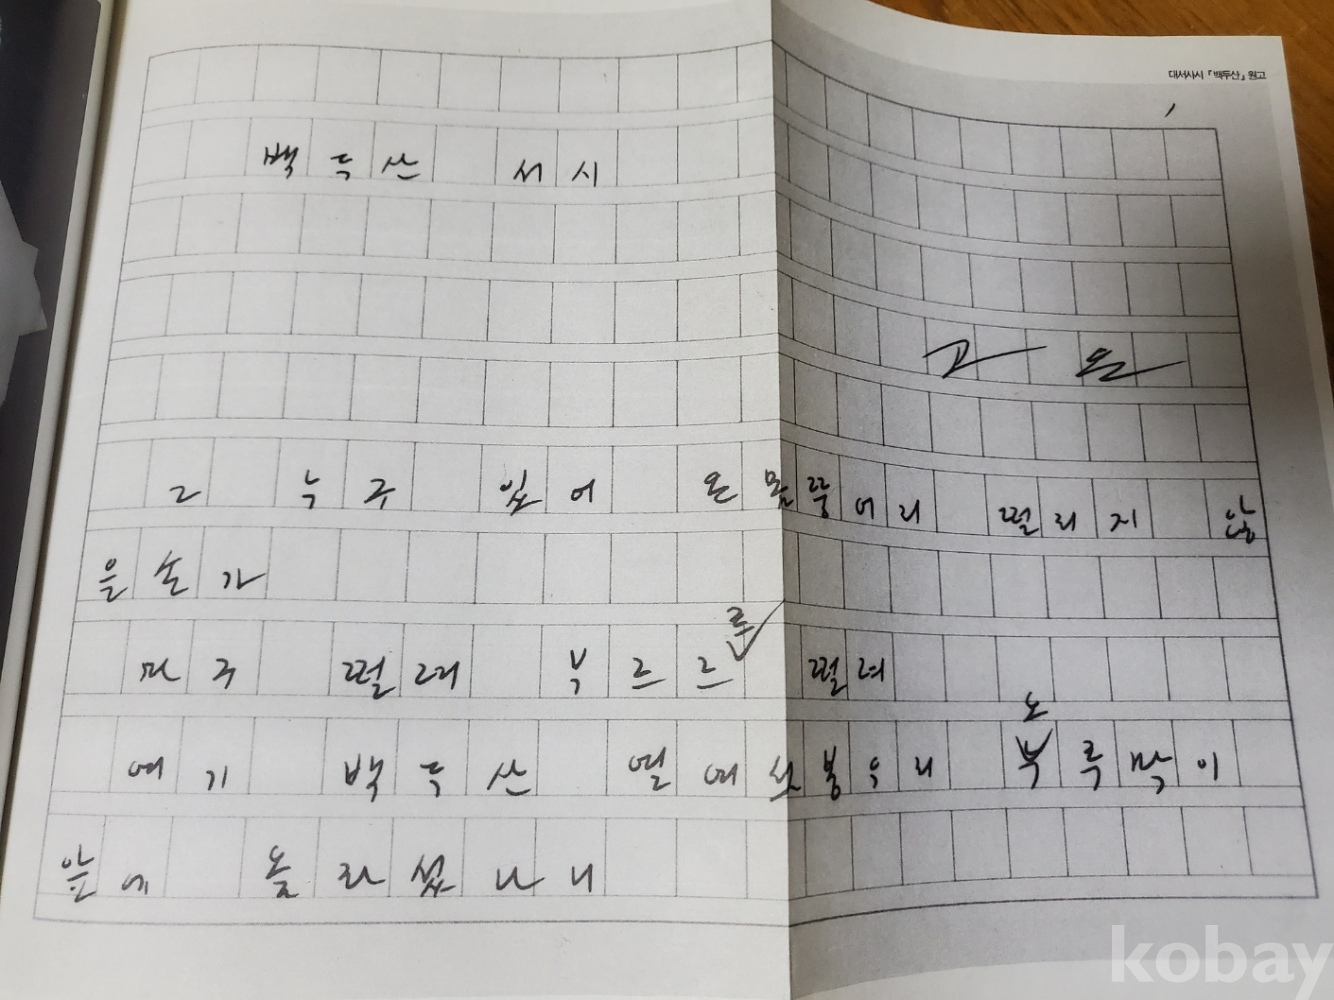 대서사시 『백두산』 원고
백두산 서시
고은
그 누구 있어 온몸뚱어리 떨리지 않
을손가
마구 떨려 부르르 떨려
여기 백두산 열여섯봉우리
앞에 올라섰나니
kobay